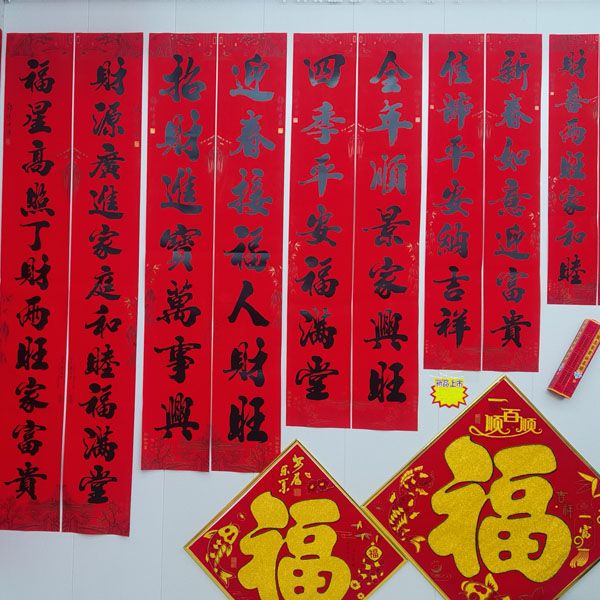 財喜兩旺家和睦
新春如意迎富貴
佳節平安納吉祥
全年順景家興旺
四季平安福滿堂
迎春接福人財旺
招財進寶萬事興
財源廣進家庭和睦福滿堂
福星高照丁財兩旺家富貴
新品上市
一順百順
福
福
福